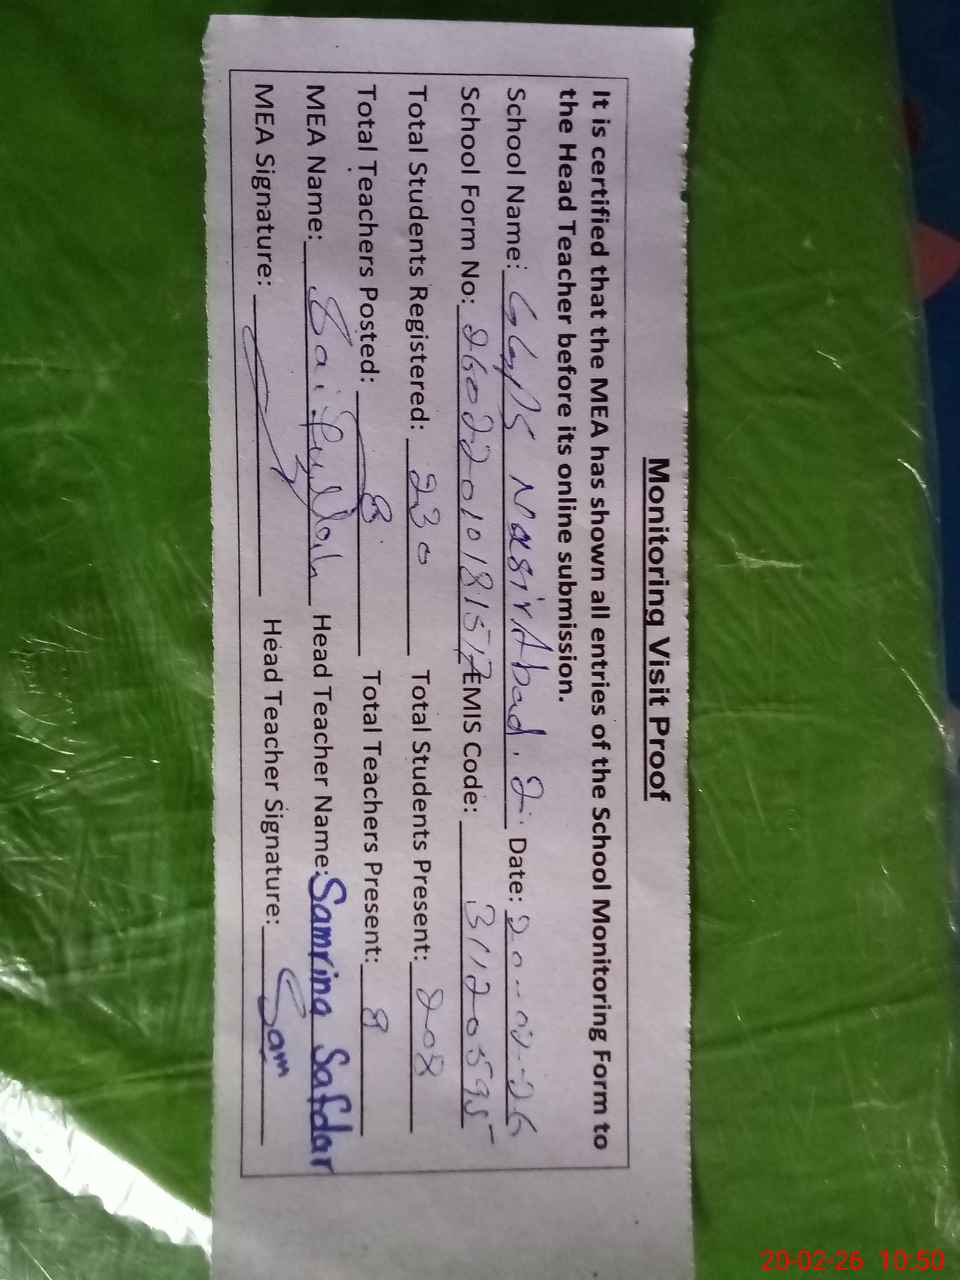 Monitoring Visit Proof
It is certified that the MEA has shown all entries of the School Monitoring Form to
the Head Teacher before its online submission.
School Name: GGPS Nasir Abad. 2 Date: 20-02-26
School Form No: EMIS Code: 31120595
Total Students Registered: 230 Total Students Present: 208
Total Teachers Posted: 8 Total Teachers Present: 8
MEA Name: Saifullah Head Teacher Name: Samrina Safdar
MEA Signature: Head Teacher Signature: Sam
20-02-26 10:50